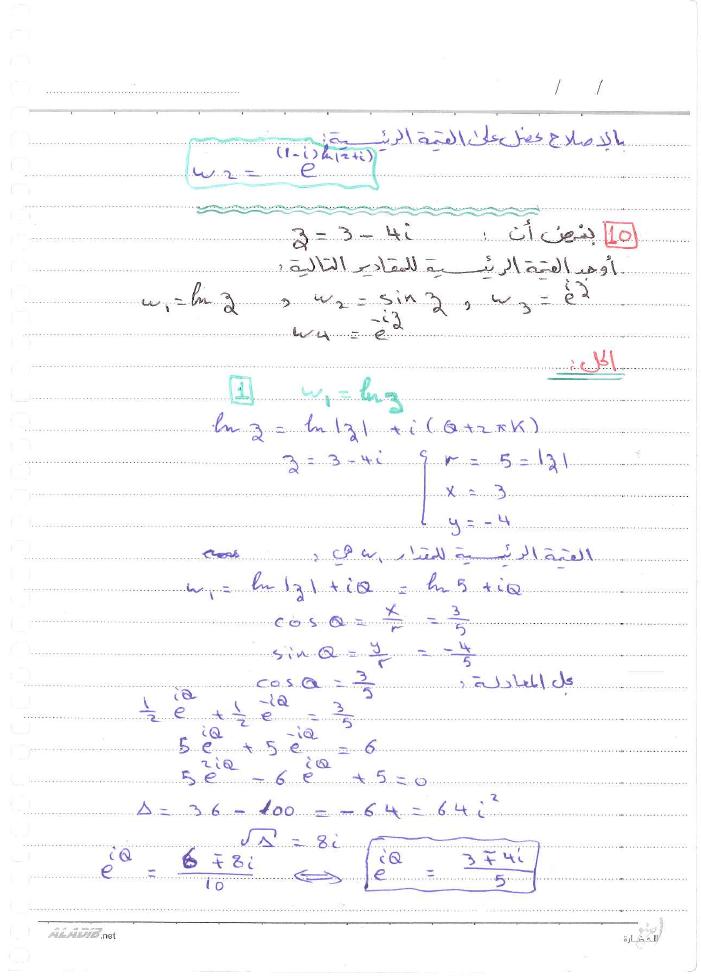 / /
بالإصلاح نحصل على القيمة الرئيسية:
w2 = e^(1-i)ln(2+i)
10 بفرض أن : z = 3 - 4i
أوجد القيمة الرئيسية للمقادير التالية:
w₁ = ln z , w₂ = sin z , w₃ = e^iz
w4 = e^-iz
الحل:
1 w₁ = ln z
ln z = ln|z| + i(θ+2πK)
z = 3-4i { r = 5 = |z|
x = 3
y = -4
القيمة الرئيسية للمقدار w₁ هي :
w₁ = ln|z| + iθ = ln 5 + iθ
cos θ = x/r = 3/5
sin θ = y/r = -4/5
cos θ = 3/5 بحل المعادلة:
1/2 e^iθ + 1/2 e^-iθ = 3/5
5e^iθ + 5e^-iθ = 6
5e^2iθ - 6e^iθ + 5 = 0
Δ = 36 - 100 = -64 = 64i²
√Δ = 8i
e^iθ = (6 ∓ 8i)/10 ⟺ e^iθ = (3 ∓ 4i)/5
ALADIB.net
الحضارة